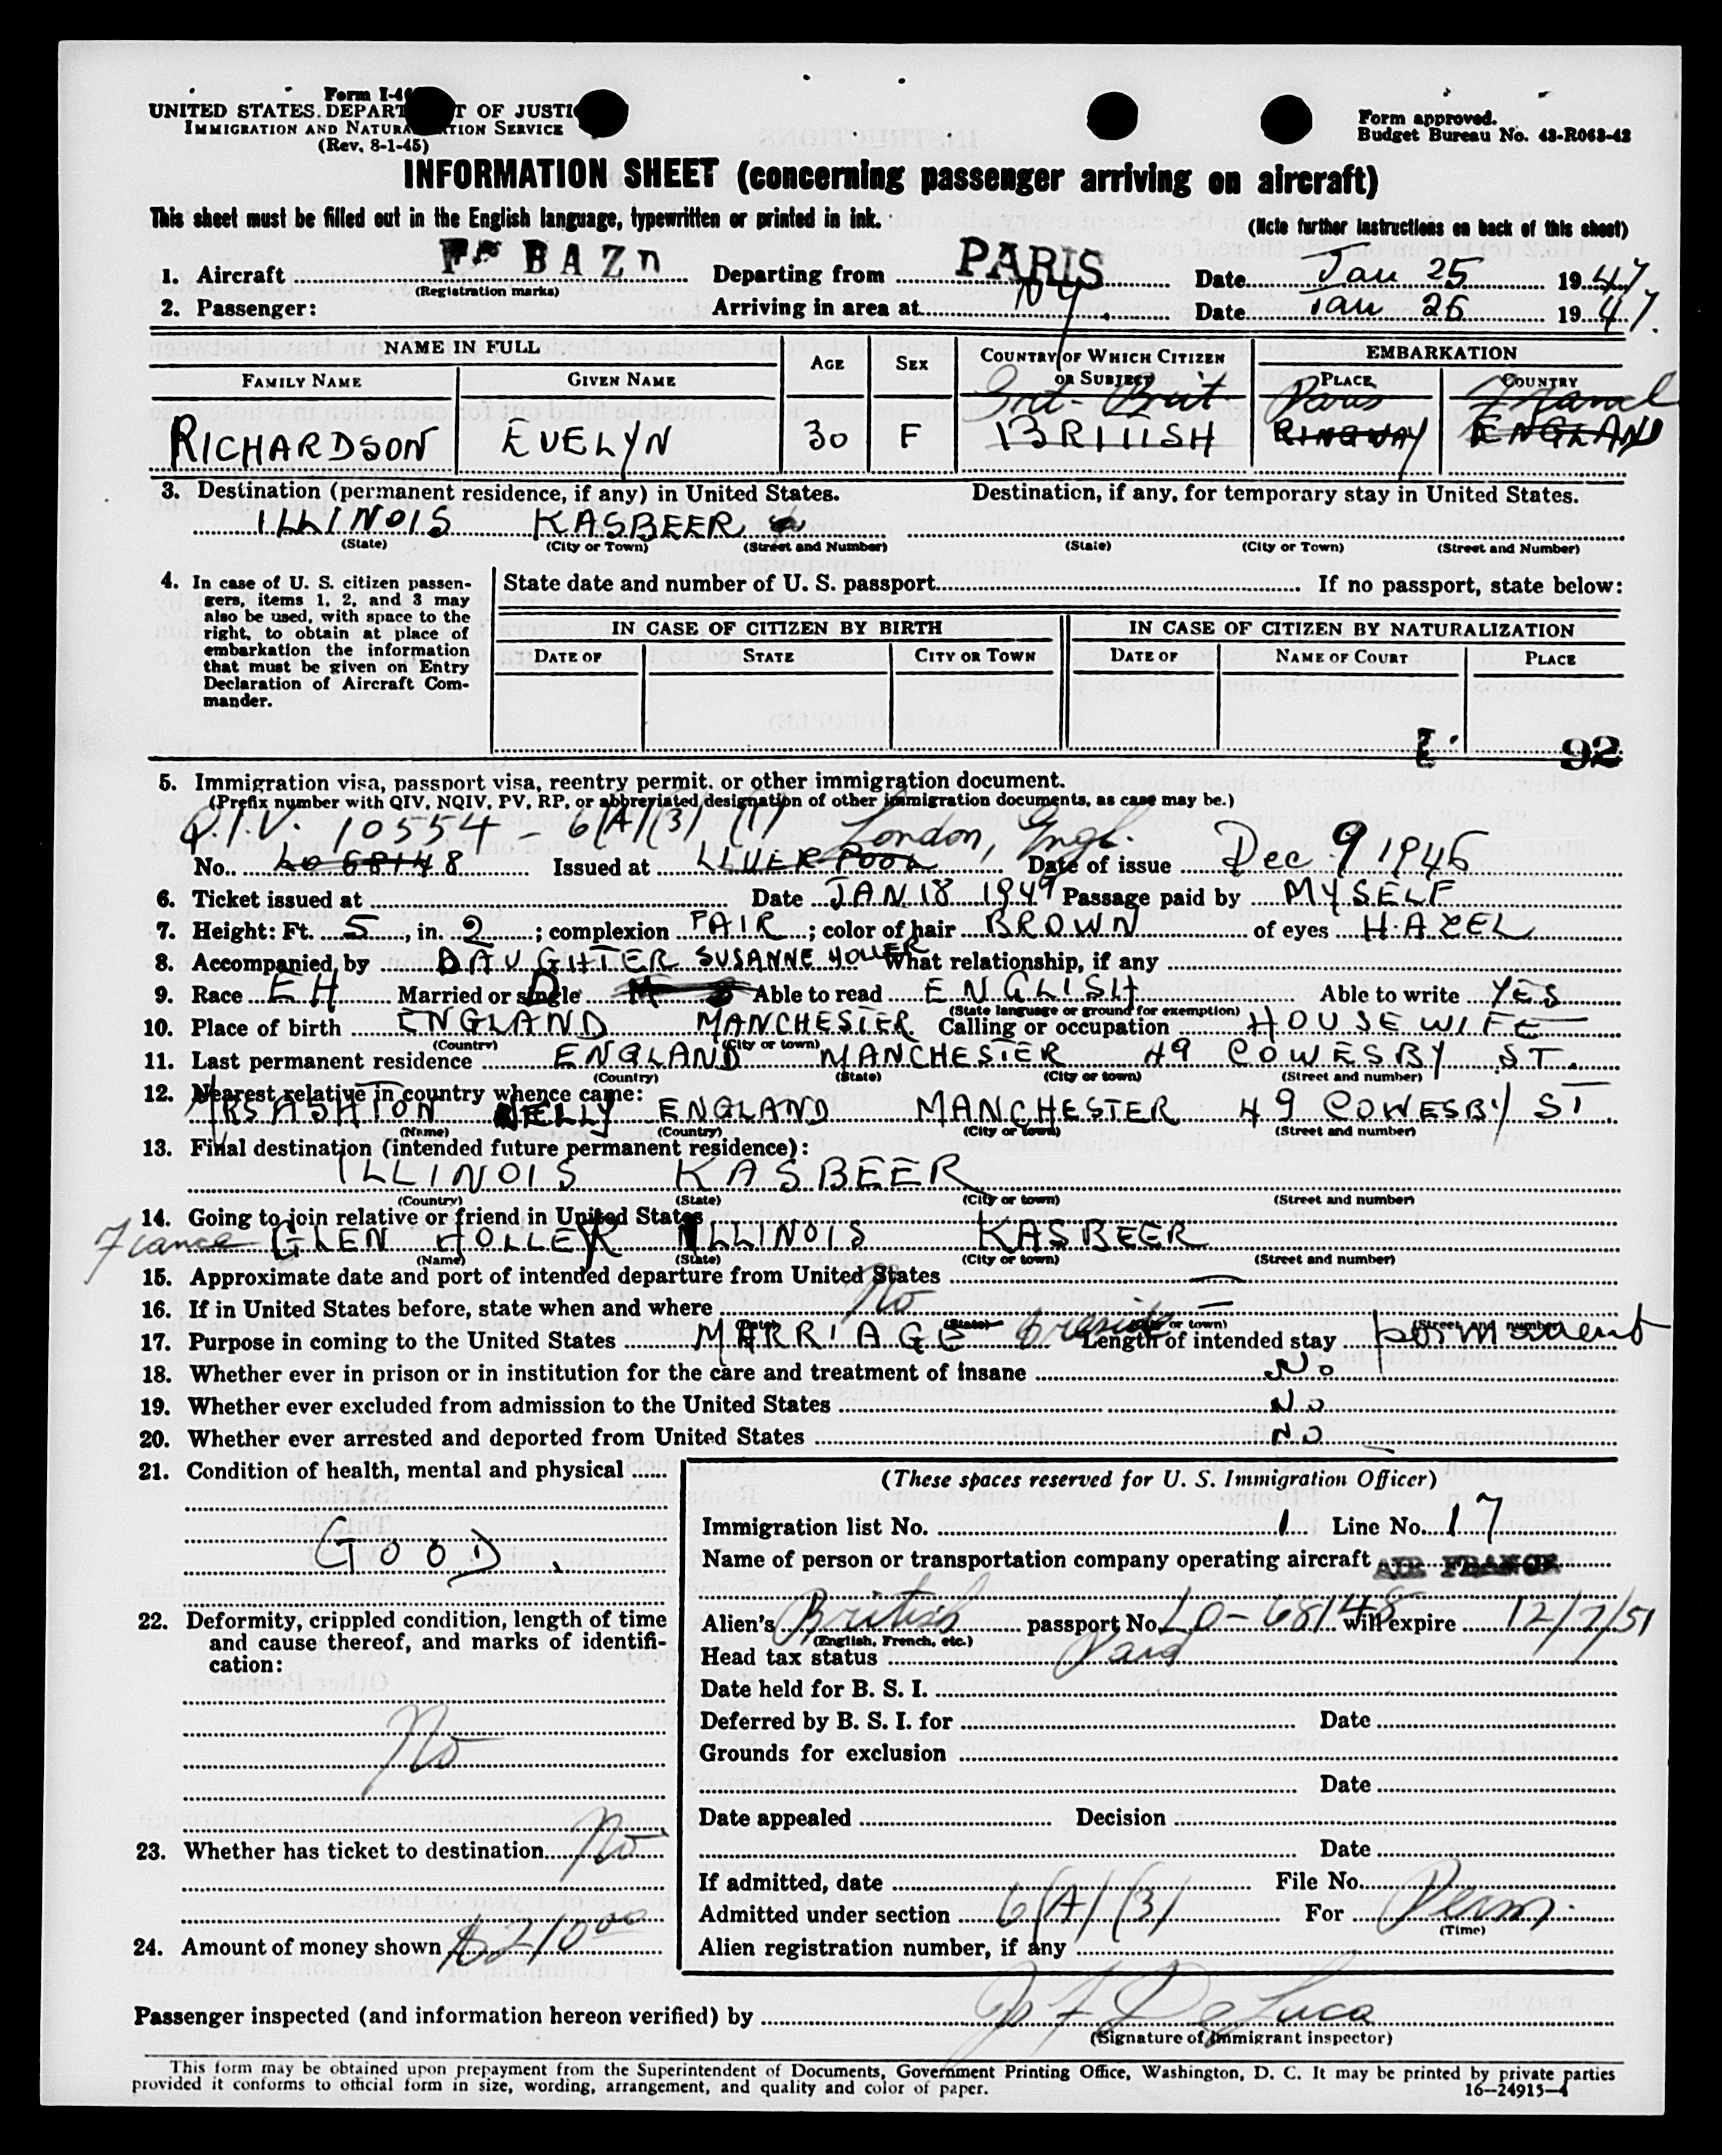 Form I-4
UNITED STATES DEPART T OF JUSTI
IMMIGRATION AND NATURA TION SERVICE
(Rev. 8-1-45)
Form approved.
Budget Bureau No. 43-R068-42
INFORMATION SHEET (concerning passenger arriving on aircraft)
This sheet must be filled out in the English language, typewritten or printed in ink.
(Note further instructions on back of this sheet)
1. Aircraft F- BAZN Departing from PARIS Date Jan 25 1947
(Registration marks)
2. Passenger: Arriving in area at NY. Date Jan 26 1947.
NAME IN FULL AGE SEX COUNTRY OF WHICH CITIZEN OR SUBJECT EMBARKATION
FAMILY NAME GIVEN NAME PLACE COUNTRY
Grt- Brit Paris France
RICHARDSON EVELYN 30 F BRITISH RINGWAY ENGLAND
3. Destination (permanent residence, if any) in United States. Destination, if any, for temporary stay in United States.
ILLINOIS KASBEER
(State) (City or Town) (Street and Number) (State) (City or Town) (Street and Number)
4. In case of U. S. citizen passengers, items 1, 2, and 3 may also be used, with space to the right, to obtain at place of embarkation the information that must be given on Entry Declaration of Aircraft Commander.
State date and number of U. S. passport If no passport, state below:
IN CASE OF CITIZEN BY BIRTH IN CASE OF CITIZEN BY NATURALIZATION
DATE OF STATE CITY OR TOWN DATE OF NAME OF COURT PLACE
92
5. Immigration visa, passport visa, reentry permit, or other immigration document.
(Prefix number with QIV, NQIV, PV, RP, or abbreviated designation of other immigration documents, as case may be.)
Q.I.V. 10554 - 6(A)(3) (1) London, Engl.
No. LO 68148 Issued at LIVERPOOL Date of issue Dec 9 1946
6. Ticket issued at Date JAN 18 1947 Passage paid by MYSELF
7. Height: Ft. 5, in. 2; complexion FAIR; color of hair BROWN of eyes HAZEL
8. Accompanied by DAUGHTER SUSANNE What relationship, if any
9. Race EH Married or single D Able to read ENGLISH Able to write YES
(State language or ground for exemption)
10. Place of birth ENGLAND MANCHESTER Calling or occupation HOUSEWIFE
(Country) (City or town)
11. Last permanent residence ENGLAND MANCHESTER 49 COWESBY ST.
(Country) (State) (City or town) (Street and number)
12. Nearest relative in country whence came:
MRS ASHTON NELLY ENGLAND MANCHESTER 49 COWESBY ST
(Name) (Country) (City or town) (Street and number)
13. Final destination (intended future permanent residence):
ILLINOIS KASBEER
(Country) (State) (City or town) (Street and number)
14. Going to join relative or friend in United States
Fiance GLEN ILLINOIS KASBEER
(Name) (State) (City or town) (Street and number)
15. Approximate date and port of intended departure from United States —
16. If in United States before, state when and where No —
(Date) (State) (City or town) (Street and number)
17. Purpose in coming to the United States MARRIAGE Length of intended stay permanent
18. Whether ever in prison or in institution for the care and treatment of insane No
19. Whether ever excluded from admission to the United States No
20. Whether ever arrested and deported from United States NO
21. Condition of health, mental and physical
GOOD.
22. Deformity, crippled condition, length of time and cause thereof, and marks of identification:
No
23. Whether has ticket to destination No
24. Amount of money shown $210.00
(These spaces reserved for U. S. Immigration Officer)
Immigration list No. 1 Line No. 17
Name of person or transportation company operating aircraft AIR FRANCE
Alien's British passport No. LO-68148 will expire 12/2/51
(English, French, etc.)
Head tax status Paid
Date held for B. S. I.
Deferred by B. S. I. for Date
Grounds for exclusion
Date
Date appealed Decision
Date
If admitted, date File No.
Admitted under section 6(A)(3) For Perm.
(Time)
Alien registration number, if any
Passenger inspected (and information hereon verified) by F DeLuca
(Signature of immigrant inspector)
This form may be obtained upon prepayment from the Superintendent of Documents, Government Printing Office, Washington, D. C. It may be printed by private parties
provided it conforms to official form in size, wording, arrangement, and quality and color of paper. 16—24915-4